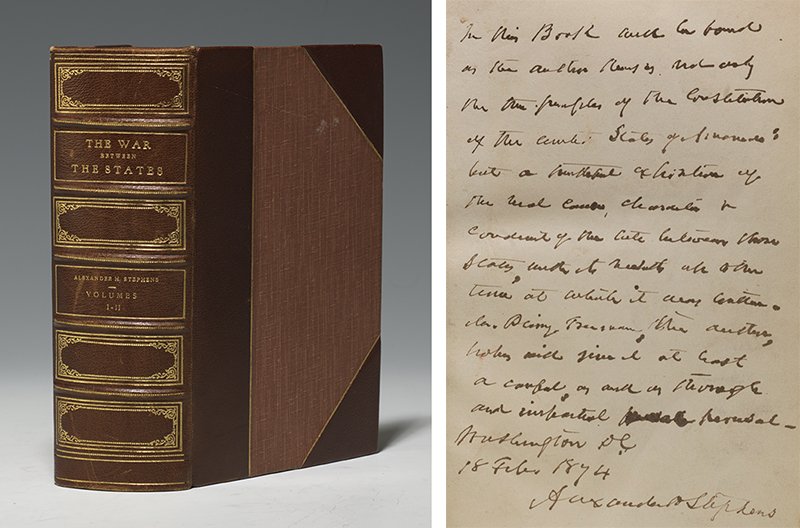 THE WAR
BETWEEN
THE STATES
ALEXANDER H. STEPHENS
VOLUMES
I-II
In this Book will be found
as the author thinks not only
the true principles of the Constitution
of the United States of America:
but a truthful exhibition of
the real cause, character &
conduct of the late between those
States with its results up to the
time at which it was
the author
hopes will give it at least
a careful as well as thorough
and impartial perusal-
Washington D.C.
18 Feby 1874
Alexander H Stephens